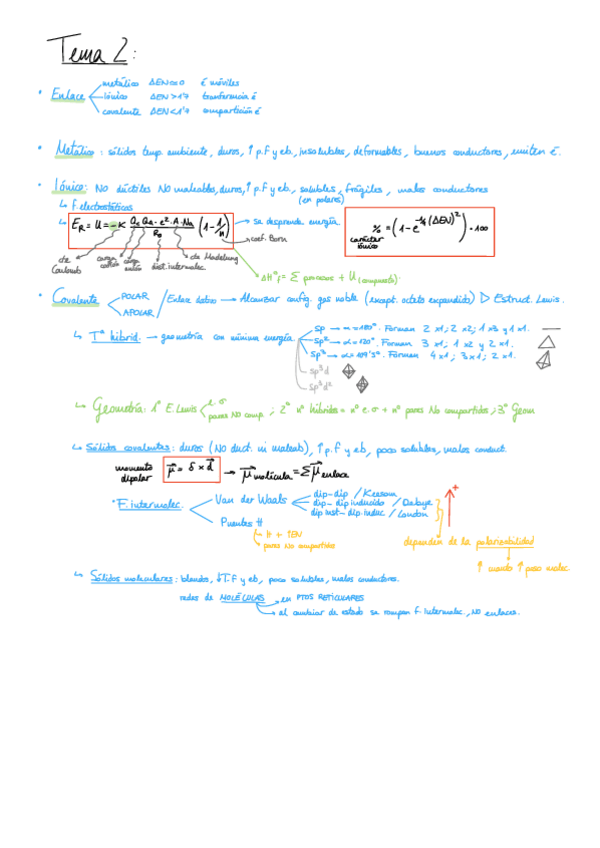 Tema 2:
• Enlace metálico ΔEN≈0 é móviles
iónico ΔEN>1'7 transferencia é
covalente ΔEN<1'7 compartición é
• Metálico: sólidos temp. ambiente, duros, ↑p.f y eb., insolubles, deformables, buenos conductores, emiten é.
• Iónico: NO dúctiles NO maleables, duros, ↑p.f y eb., solubles, frágiles, malos conductores
(en polares)
↳ f. electrostáticas
↳ E_R = U = -K (Qc Qa · e² · A · Na / R₀) (1 - 1/n) → se desprende energía
coef. Born
% carácter iónico = (1 - e^(-1/4 (ΔEN)²)) · 100
cte Coulomb
carga catión
carga anión
dist. internuclec.
cte Madelung
ΔH°f = Σ procesos + U (compuesto).
• Covalente POLAR / APOLAR / Enlace dativo → Alcanzar config. gas noble (except. octeto expandido) ▷ Estruct. Lewis.
↳ Tª hibrid. → geometría con mínima energía
sp → α=180°. Forman 2 x1; 2 x2; 1 x3 y 1 x1.
sp² → α=120°. Forman 3 x1; 1 x2 y 2 x1.
sp³ → α=109'5°. Forman 4 x1; 3 x1; 2 x1.
sp³d
sp³d²
↳ Geometría: 1° E. Lewis e. σ pares NO comp. ; 2° nº híbridos = nº e. σ + nº pares No compartidos ; 3° Geom
↳ Sólidos covalentes: duros (NO duct. ni maleab), ↑p.f y eb, poco solubles, malos conduct.
momento dipolar μ⃗ = δ x d⃗ → μ⃗ molécula = Σ μ⃗ enlace
• F. intermolec. Van der Waals dip-dip / Keesom
dip-dip inducido / Debye
dip inst-dip. induc / London
Puentes H
H + ↑EN
pares No compartidos
+
dependen de la polarizabilidad
↑ cuando ↑ peso molec
↳ Sólidos moleculares: blandos, ↓T.f y eb, poco solubles, malos conductores.
redes de MOLÉCULAS en PTOS RETICULARES
al cambiar de estado se rompen f. intermolec., NO enlaces.